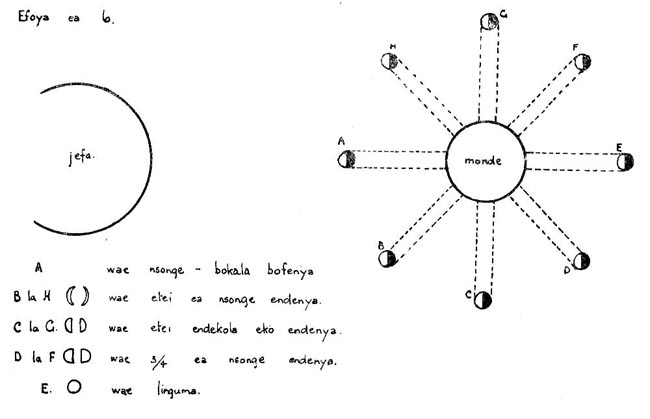 Efoya ea 6.
G
H
F
jefa.
A
monde
E
B
D
C
A wae nsonge - bokala bofenya
B la H wae etei ea nsonge endenya.
C la G. wae etei endekola eko endenya.
D la F wae 3/4 ea nsonge endenya.
E. wae linguma.